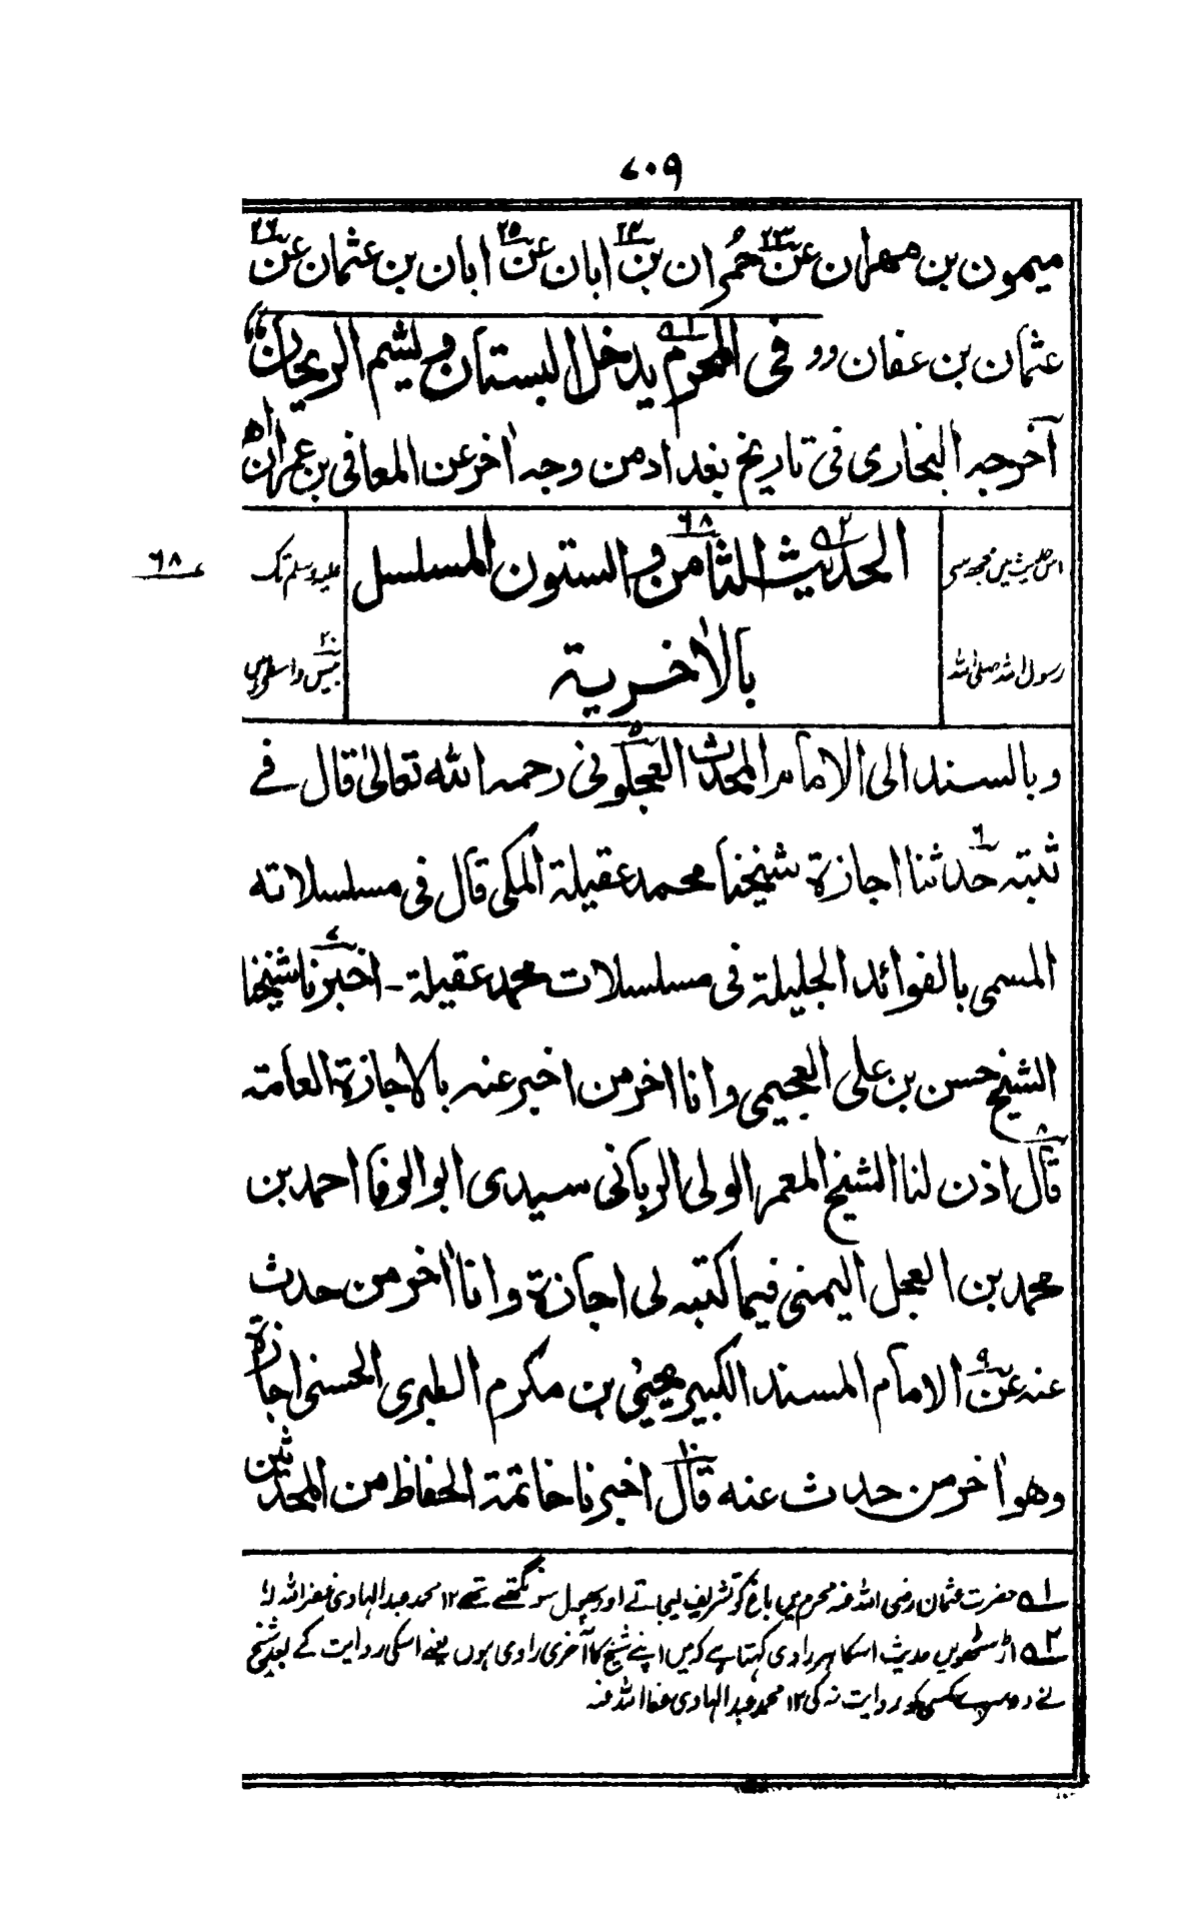 ۷۰۹
میمون بن مهران عن۲۳ حُمران بن۲۴ ابان عن۲۵ ابان بن عثمان عن۲۶
عثمان بن عفان وو فی المحرم۱؎ یدخل البستان ویشم الریحان،،
اخرجہ البخاری فی تاریخ بغداد من وجہ اٰخر عن المعافی بن عمران اھ
الحدیث۲؎ الثامن۶۸ والستون المسلسل
بالاٰخریة
اس حدیث میں مجھ سے
رسول اللہ صلی اللہ
علیہ وسلم تک
۲۰ بیس واسطے ہیں
۶۸
وبالسند الی الامام المحدث العجلونی۵ رحمہ اللہ تعالیٰ قال فے
ثبتہ حدثنا۶ اجازة شیخنا محمد عقیلة المکی قال فی مسلسلاته
المسمی بالفوائد الجلیلة فی مسلسلات محمد عقیلة - اخبرنا۷ شیخنا
الشیخ حسن بن علی العجیمی وانا اٰخر من اخبر عنہ بالاجازة العامتہ
قال۸ اذن لنا الشیخ المعمر الولی الربانی سیدی ابو الوفا احمد بن
محمد بن العجل الیمنی فیما کتبہ لی اجازة وانا اٰخر من حدث
عنہ عن۹ الامام المسند الکبیر یحییٰ بن مکرم الطبری الحسنی اجازة
وھو اٰخر من حدث عنہ قال۱۰ اخبرنا خاتمة الحفاظ من المحدثین
۱؎ حضرت عثمان رضی اللہ عنہ محرم میں باغ کو تشریف لیجاتے اور پھول سونگھتے تھے ۱۲ محمد عبد الہادی غفر اللہ لہ
۲؎ اڑسٹھویں حدیث اسکا ہر راوی کہتا ہے کہ میں اپنے شیخ کا آخری راوی ہوں یعنے اسکی روایت کے بعد شیخ
نے دوسرے کسی کو روایت نہ کی ۱۲ محمد عبد الہادی عفا اللہ عنہ